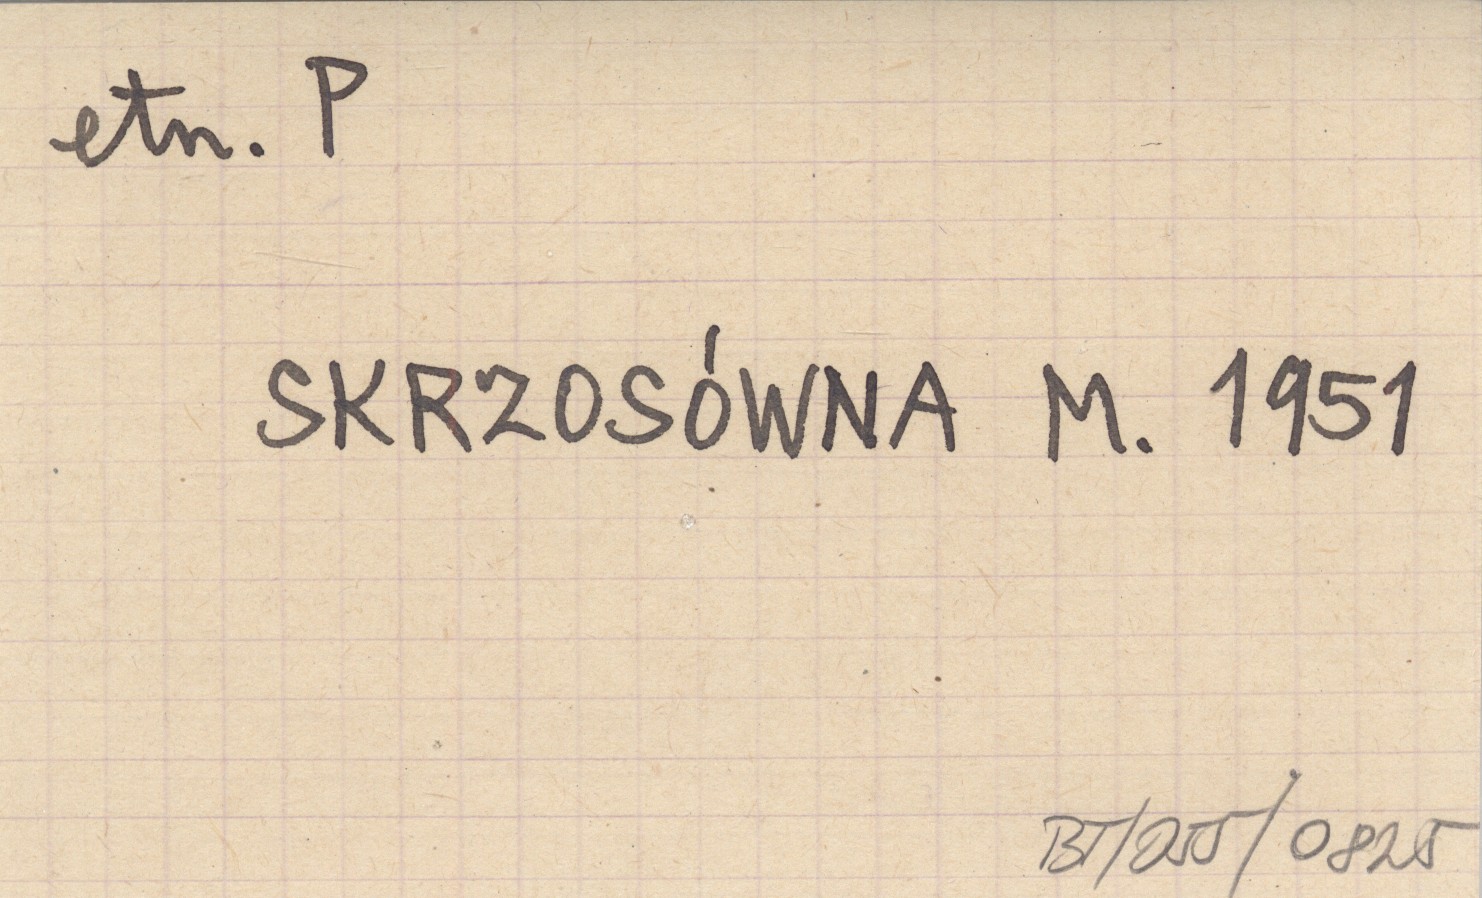 etn. P
SKRZOSÓWNA M. 1951
BT/255/0825